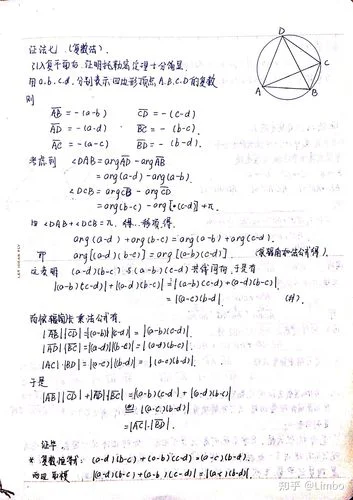 证法七 (复数法).
引入复平面内, 证明托勒密定理十分简单.
用 a.b.c.d. 分别表示四边形顶点 A.B.C.D 的复数
则
AB = -(a-b) CD = -(c-d)
AD = -(a-d) BC = -(b-c).
AC = -(a-c) BD = -(b-d).
考虑到 ∠DAB = arg AD - arg AB
= arg(a-d) - arg(a-b).
∠DCB = arg CB - arg CD
= arg(b-c) - arg[-(c-d)] + π.
∠DAB + ∠DCB = π. 得. 移项得.
arg(a-d) + arg(b-c) = arg(a-b) + arg(c-d).
即 arg[(a-d)(b-c)] = arg[(a-b)(c-d)].
这表明 (a-d)(b-c) 与 (a-b)(c-d) 共得同向, 于是有
|(a-b)(c-d)| + |(a-d)(b-c)| = |(a-b)(c-d) + (a-d)(b-c)|.
= |(a-c)(b-d)|. (#).
而按辐角法 乘法公式有.
|AB||CD| = |(a-b)||c-d| = |(a-b)(c-d)|.
|AD||BC| = |(a-d)||b-c| = |(a-d)(b-c)|.
|AC|·|BD| = |(a-c)||b-d| = |(a-c)(b-d)|.
于是
|AB||CD| + |AD||BC| = |(a-b)(c-d)| + |(a-d)(b-c)|
= |(a-c)(b-d)|
= |AC|·|BD|.
证毕.
* 复数恒等式: (a-d)(b-c) + (a-b)(c-d) = (a-c)(b-d).
两边取模 |(a-d)(b-c) + (a-b)(c-d)| = |(a-c)(b-d)|.
D
C
A
B
知乎 @Limbo